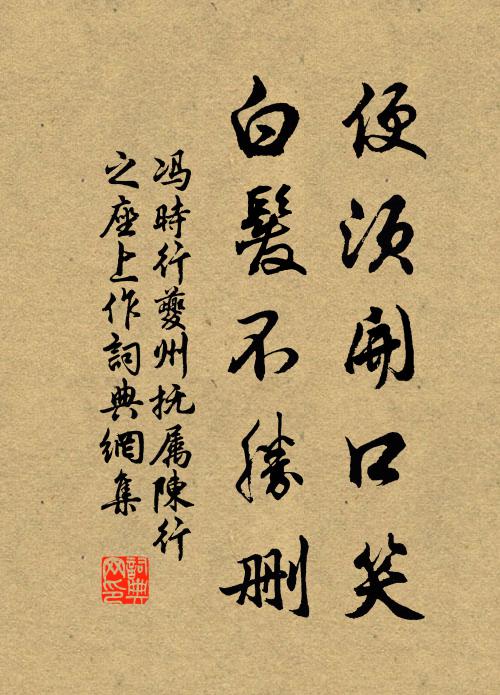 便須開口笑
白髮不勝刪
冯時行夔州抚属陳行
之座上作詞典網集
詞典网印